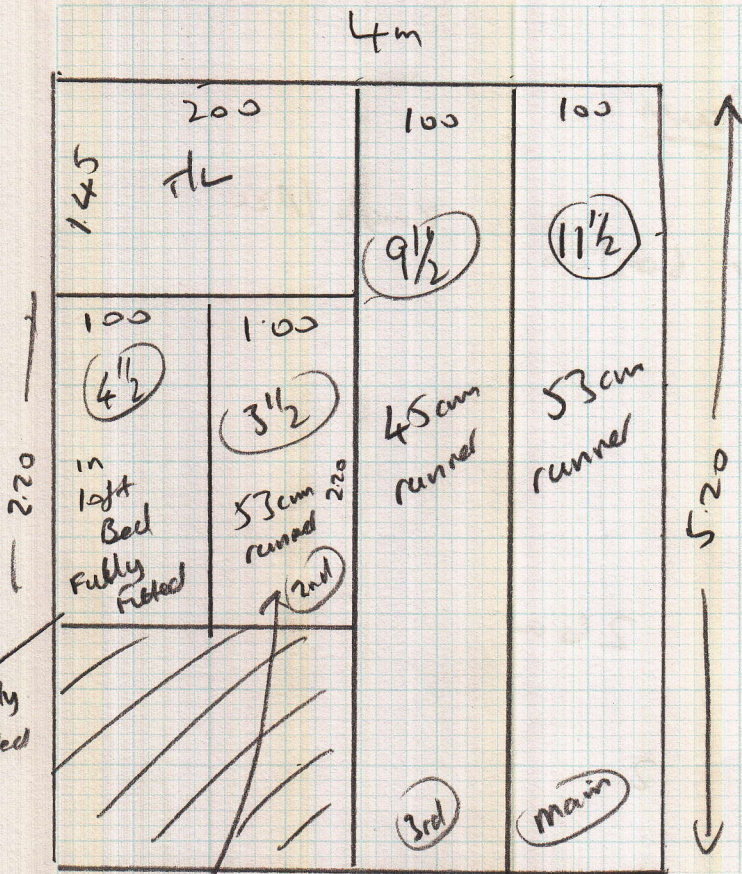 4m
200
100
100
1.45
T/L
9 1/2
11 1/2
100
1.00
4 1/2
3 1/2
45cm
runner
53cm
runner
in
loft
Bed
Fully
Fitted
53cm
runner
2.20
2nd
2.20
5.20
3rd
main